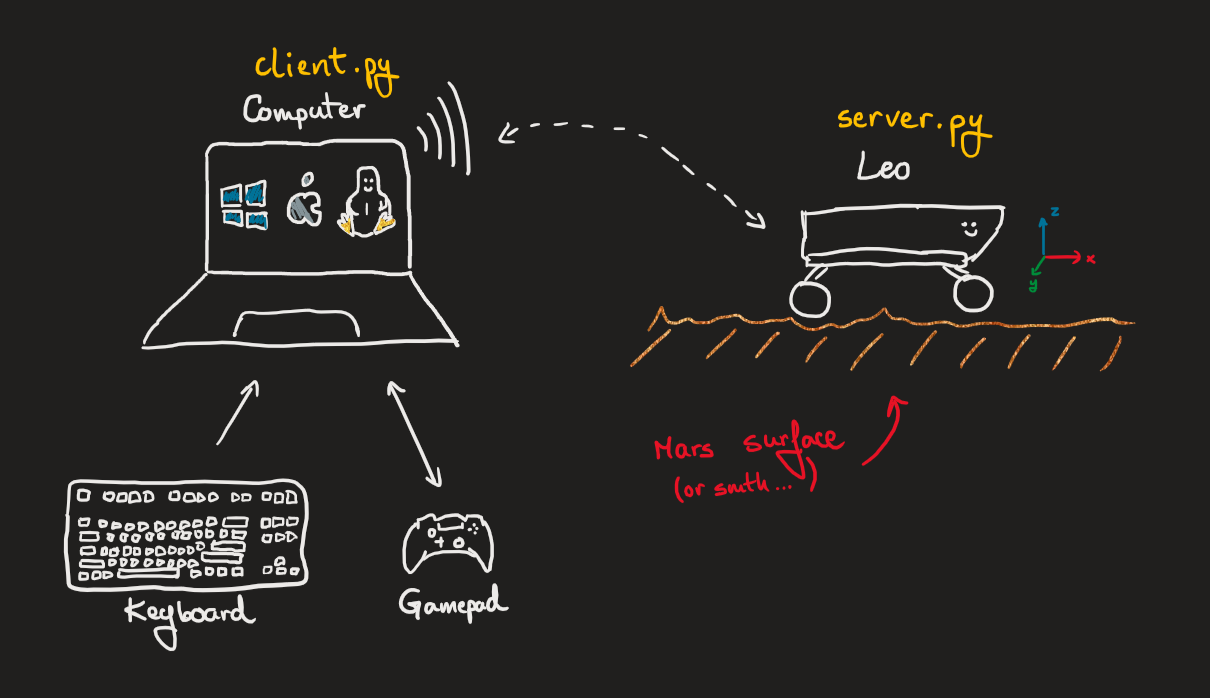 client.py
Computer
server.py
Leo
z
x
y
Mars surface
(or smth...)
Keyboard
Gamepad